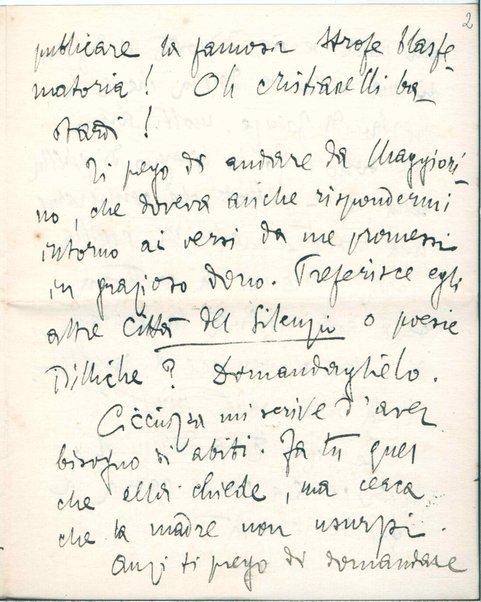 2
publicare la famosa strofe blasfe-
matoria! Oh cristianelli ba-
stardi!
Ti prego di andare da Maggiori-
no, che doveva anche rispondermi
intorno ai versi da me promessi
in grazioso dono. Preferisce egli
altre Città del Silenzio o poesie
idilliche? Domandaglielo.
Cicciuzza mi scrive d'aver
bisogno di abiti. Fa tu quel
che ella chiede, ma cerca
che la madre non usurpi.
Anzi ti prego di domandare